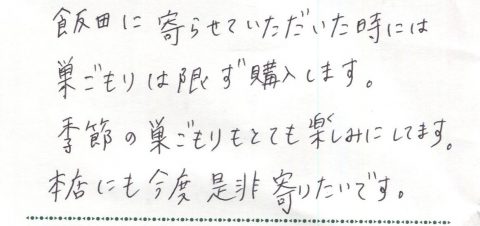 飯田に寄らせていただいた時には
巣ごもりは限ず購入します。
季節の巣ごもりもとても楽しみにしてます。
本店にも今度是非寄りたいです。